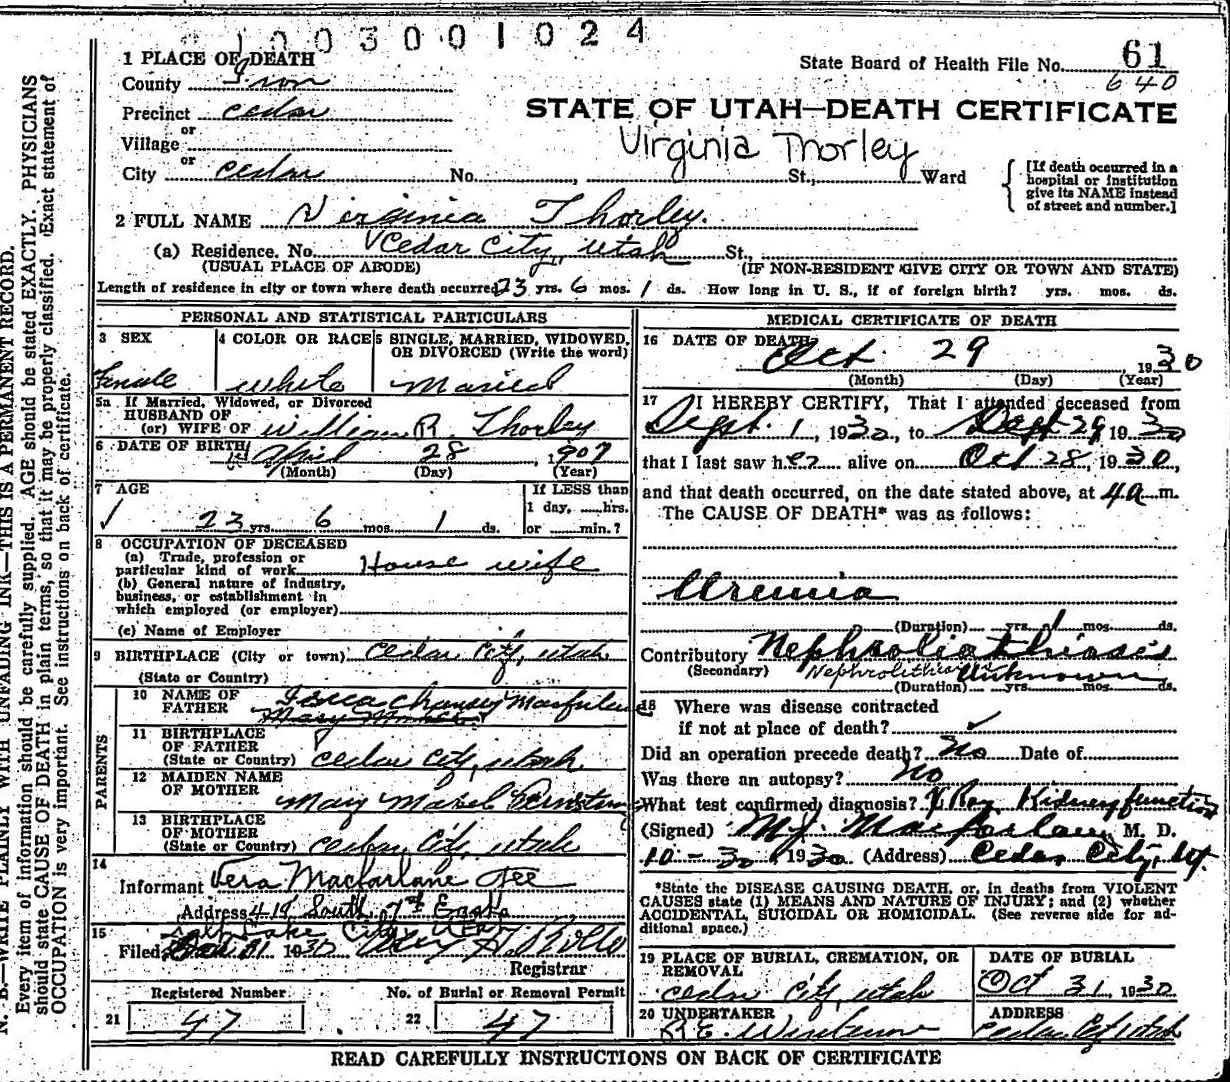 1003001024
1 PLACE OF DEATH
State Board of Health File No. 61
640
County Iron
STATE OF UTAH—DEATH CERTIFICATE
Precinct Cedar
or
Village
Virginia Thorley
or
City Cedar No. , St., Ward
[If death occurred in a
hospital or institution
give its NAME instead
of street and number.]
2 FULL NAME Virginia Thorley.
(a) Residence. No. Cedar City, Utah St.,
(USUAL PLACE OF ABODE) (IF NON-RESIDENT GIVE CITY OR TOWN AND STATE)
Length of residence in city or town where death occurred 23 yrs. 6 mos. 1 ds. How long in U. S., if of foreign birth? yrs. mos. ds.
PERSONAL AND STATISTICAL PARTICULARS
3 SEX
Female
4 COLOR OR RACE
White
5 SINGLE, MARRIED, WIDOWED,
OR DIVORCED (Write the word)
Married
5a If Married, Widowed, or Divorced
HUSBAND OF
(or) WIFE OF William R. Thorley
6 DATE OF BIRTH April 28 1907
(Month) (Day) (Year)
7 AGE
23 yrs. 6 mos. 1 ds.
If LESS than
1 day, ......hrs.
or ......min.?
8 OCCUPATION OF DECEASED
(a) Trade, profession or
particular kind of work House wife
(b) General nature of industry,
business, or establishment in
which employed (or employer)
(c) Name of Employer
9 BIRTHPLACE (City or town) Cedar City, Utah
(State or Country)
PARENTS
10 NAME OF
FATHER Chansey Macfarlane
11 BIRTHPLACE
OF FATHER
(State or Country) Cedar City, Utah
12 MAIDEN NAME
OF MOTHER
Mary Mabel
13 BIRTHPLACE
OF MOTHER
(State or Country) Cedar City, Utah
14
Informant Vera Macfarlane Fee
Address 419 South 7th East
Salt Lake City Utah
15
Filed 31 1930
Registrar
Registered Number
21 47
No. of Burial or Removal Permit
22 47
MEDICAL CERTIFICATE OF DEATH
16 DATE OF DEATH
Oct. 29 1930
(Month) (Day) (Year)
17 I HEREBY CERTIFY, That I attended deceased from
Sept. 1, 1930, to Sept 29 1930
that I last saw her alive on Oct 28, 1930,
and that death occurred, on the date stated above, at 4 a m.
The CAUSE OF DEATH* was as follows:
Uremia
(Duration) yrs. 1 mos. ds.
Contributory Nephroliathiasis
(Secondary) Nephrolithiasis Unknown
(Duration) yrs. mos. ds.
18 Where was disease contracted
if not at place of death?
Did an operation precede death? No Date of
Was there an autopsy? No
What test confirmed diagnosis? X Ray Kidney function
(Signed) M.J. Macfarlane, M. D.
10-30, 1930 (Address) Cedar City, Ut.
*State the DISEASE CAUSING DEATH, or, in deaths from VIOLENT
CAUSES state (1) MEANS AND NATURE OF INJURY; and (2) whether
ACCIDENTAL, SUICIDAL OR HOMICIDAL. (See reverse side for ad-
ditional space.)
19 PLACE OF BURIAL, CREMATION, OR
REMOVAL
Cedar City, Utah
DATE OF BURIAL
Oct 31, 1930
20 UNDERTAKER
ADDRESS
Cedar City Utah
READ CAREFULLY INSTRUCTIONS ON BACK OF CERTIFICATE
N. B.—WRITE PLAINLY WITH UNFADING INK—THIS IS A PERMANENT RECORD.
Every item of information should be carefully supplied. AGE should be stated EXACTLY. PHYSICIANS
should state CAUSE OF DEATH in plain terms, so that it may be properly classified. Exact statement of
OCCUPATION is very important. See instructions on back of certificate.